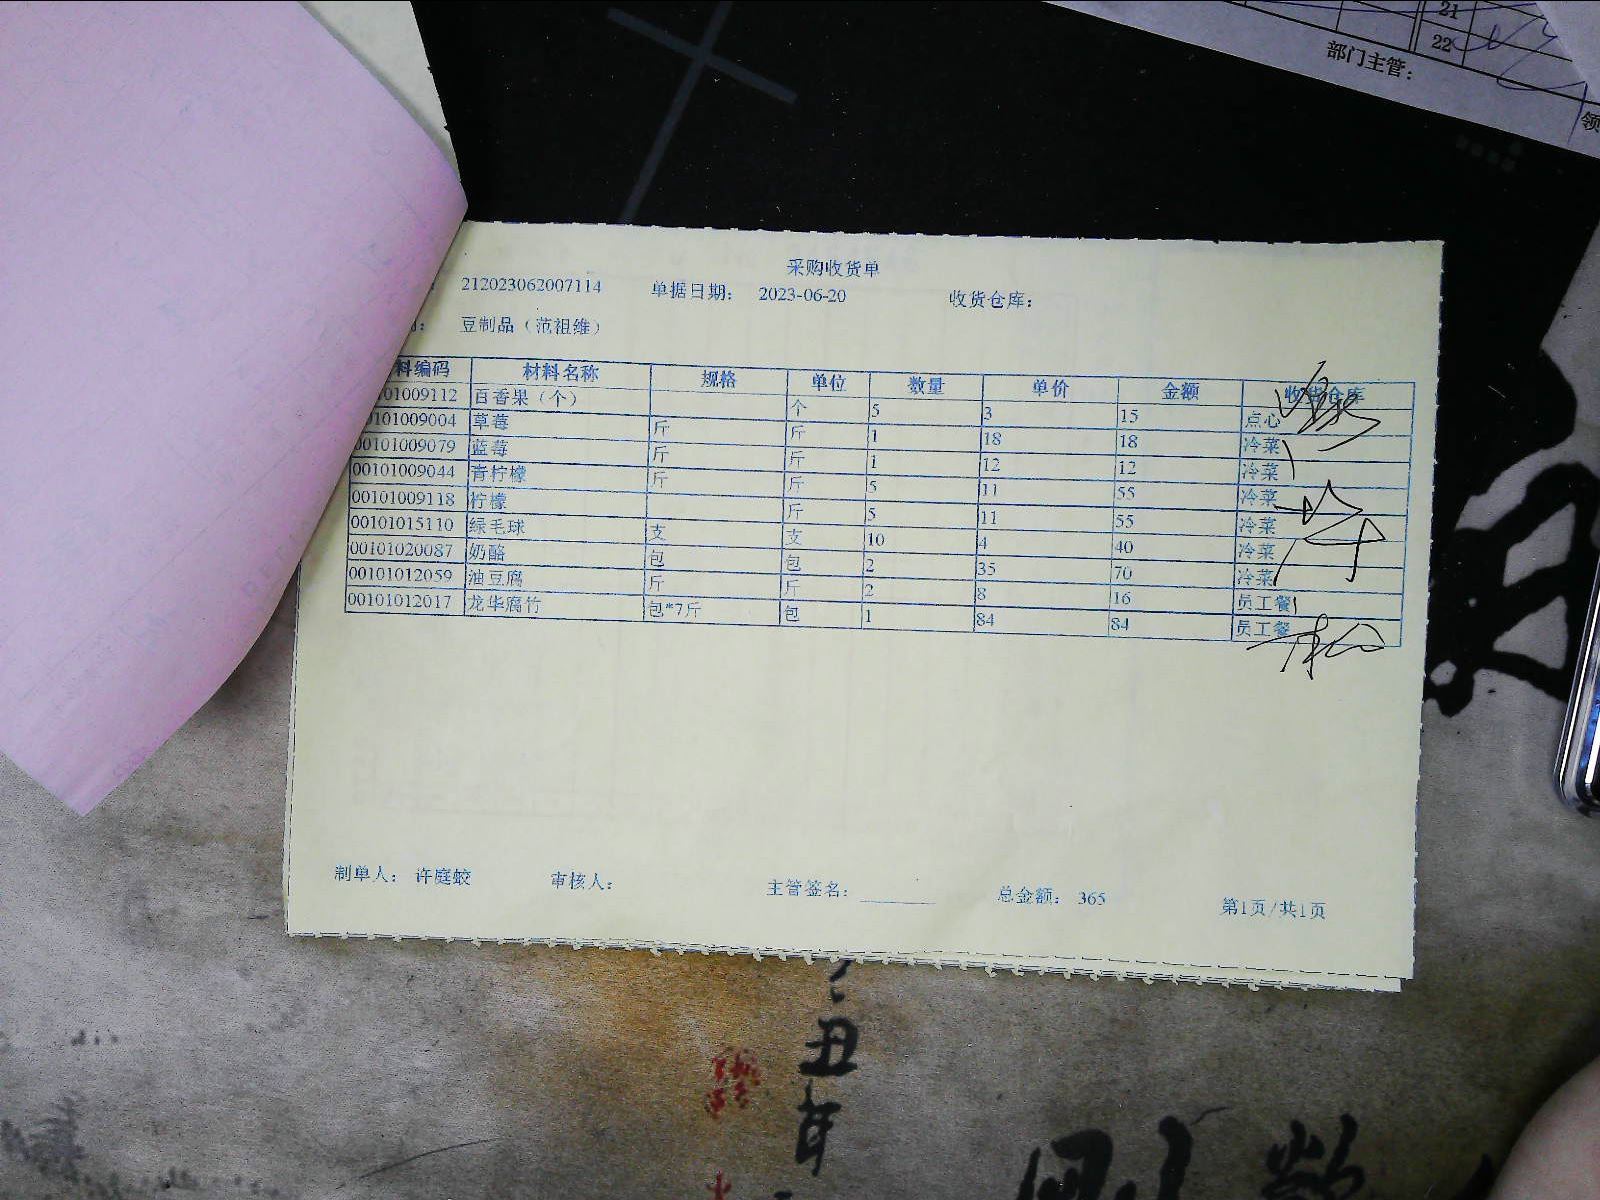 21
22
部门主管：
领
采购收货单
212023062007114 单据日期： 2023-06-20 收货仓库：
： 豆制品（范祖维）
料编码 材料名称 规格 单位 数量 单价 金额 收货仓库
01009112 百香果（个） 个 5 3 15 点心
00101009004 草莓 斤 斤 1 18 18 冷菜
00101009079 蓝莓 斤 斤 1 12 12 冷菜
00101009044 青柠檬 斤 斤 5 11 55 冷菜
00101009118 柠檬 斤 5 11 55 冷菜
00101015110 绿毛球 支 支 10 4 40 冷菜
00101020087 奶酪 包 包 2 35 70 冷菜
00101012059 油豆腐 斤 斤 2 8 16 员工餐
00101012017 龙华腐竹 包*7斤 包 1 84 84 员工餐
制单人： 许庭蛟 审核人： 主管签名： 总金额： 365 第1页/共1页
丑
年